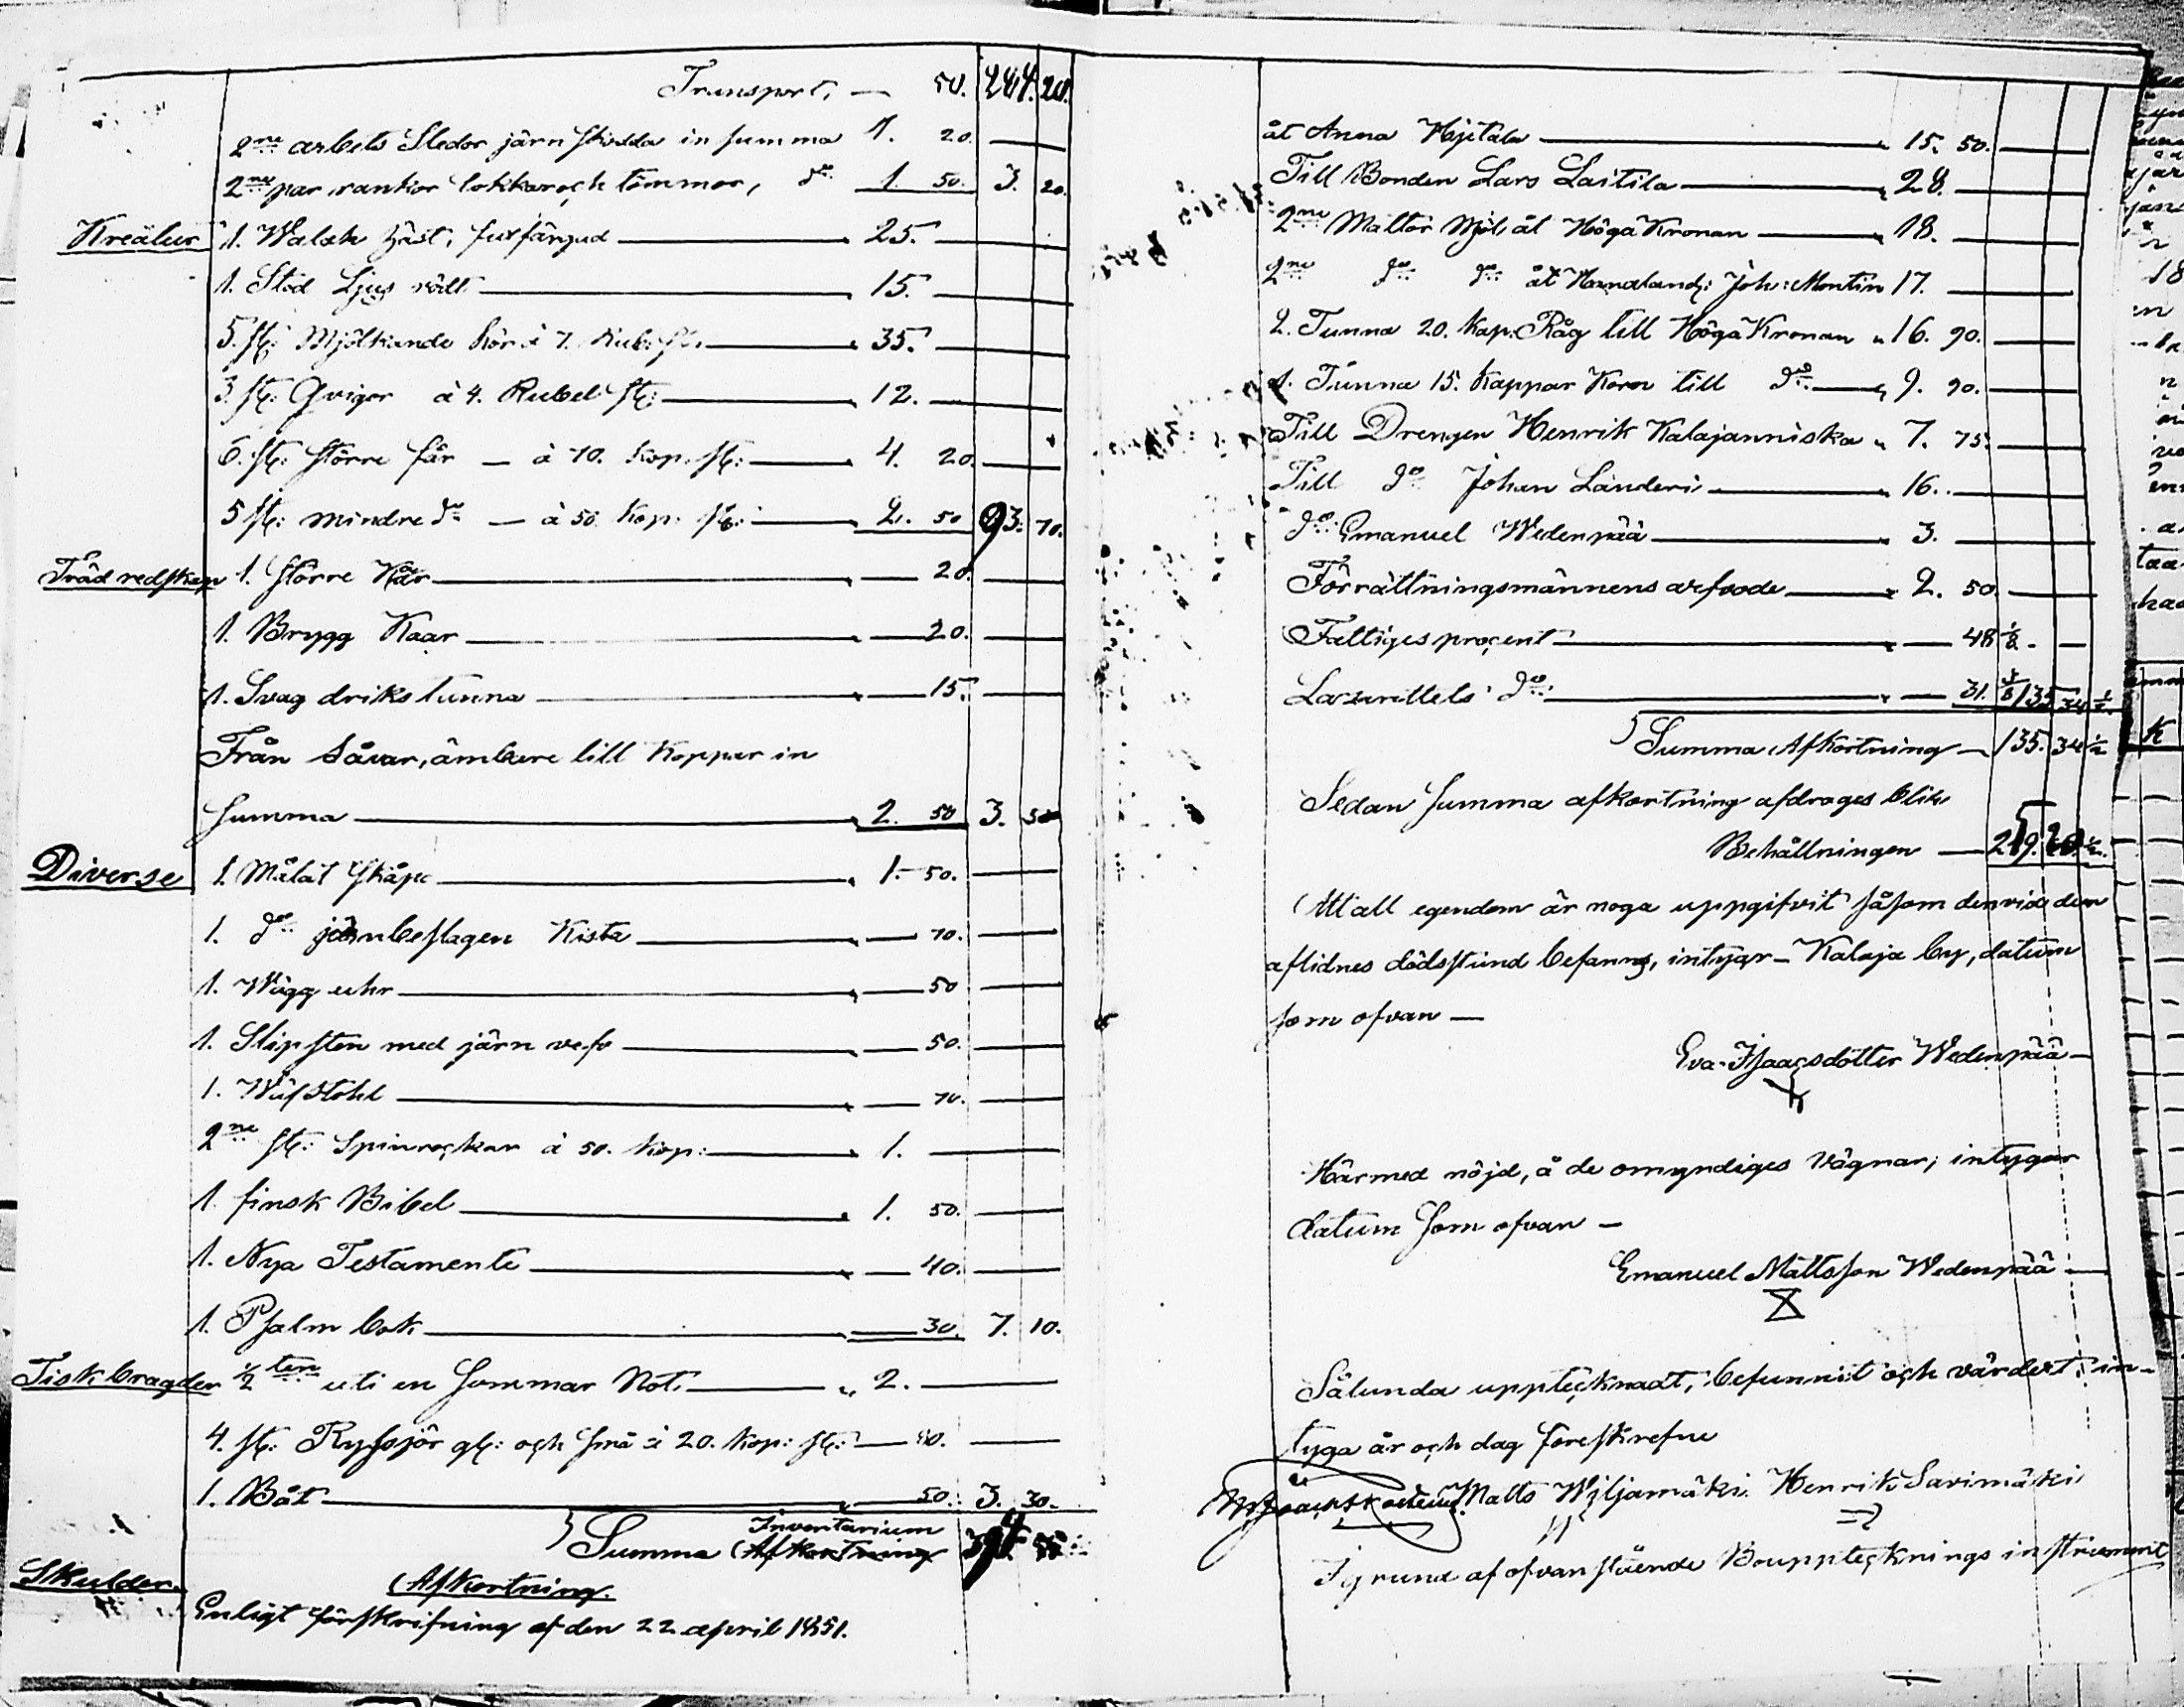 Transport, — 50. 244. 20.
2ne arbets Sledor järn skodda in summa 1. 20.
2ne par rankor lokkor och tömmar, do 1. 50. 3. 20.
Kreatur 1. Walak häst, fuxfärgad 25.
1. Stod Ljus rödt 15.
5. st: Mjölkande kor à 7. Rub: st: 35.
3 st: Qvigor à 4. Rubel st: 12.
6. st: större får — à 70. kop. st: 4. 20.
5 st: mindre do — à 50. kop. st: 2. 50 93. 70.
Träd redskap 1. större Kar 20.
1. Brygg Kaar 20.
1. Svag driks tunna 15.
Från såvar, ämbare till koppar in
summa 2. 50 3. 50
Diverse 1. Målat skåp 1. 50.
1. do järnbeslagen Kista 70.
1. Wägg uhr 50
1. Slipsten med järn vef 50.
1. Wäfstohl 70.
2ne st: Spinrockar à 50. kop: 1.
1. finsk Bibel 1. 50.
1. Nya Testamente 40.
1. Psalm bok 30. 7. 10.
Fisk bragder 1/2 ten uti en sommar Not. 2.
4. st: Ryssjor gl: och små à 20. kop: st: 80.
1. Båt 50. 3. 30.
Inventarium
Summa Afkortning
Skulder. Afkortning.
Enligt förskrifning af den 22 april 1851.
åt Anna Hijtala 15. 50.
Till Bonden Lars Laitila 28.
2ne Mattor Mjöl åt Höga Kronan 18.
2ne do do åt Handland: Joh: Montin 17.
2. Tunna 20. Kap. Råg till Höga Kronan 16. 90.
1. Tunna 15. Kappar Korn till do 9. 90.
Till Drengen Henrik Kalajanniska 7. 75.
Till do Johan Länderi 16.
do Emanuel Wedenpää 3.
Förrättningsmännens arfvode 2. 50.
Fattiges procent 48 1/8.
Lazarettets do 31. 135 34 1/2
Summa Afkortning 135. 34 1/2
Sedan summa afkortning afdrages blir
Behållningen
Att all egendom är noga uppgifvit såsom den vid den
aflidnes dödsstund befanns, intygar — Kalaja by, datum
som ofvan —
Eva Isaacsdotter Wedenpää —
Härmed nöjd, å de omyndiges vägnar, intygar
datum som ofvan —
Emanuel Mattsson Wedenpää —
Sålunda upptecknadt, befunnit och värdert, in-
tyga år och dag föreskrefne
Matts Wiljamäki. Henrik Savimäki
I grund af ofvanstående Bouppteknings instrument